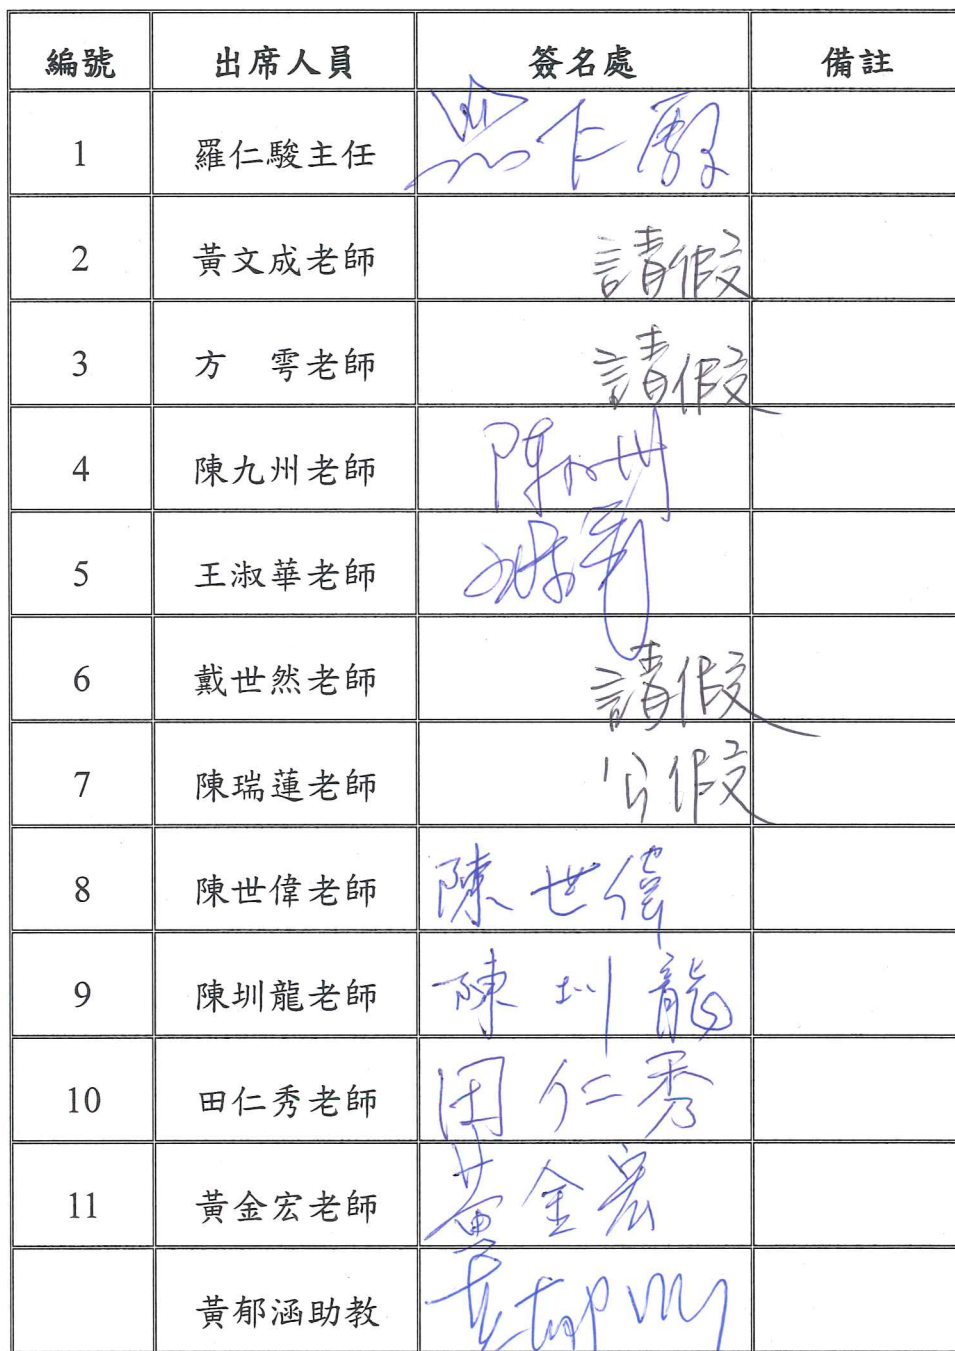 編號 出席人員 簽名處 備註
1 羅仁駿主任 羅仁駿
2 黃文成老師 請假
3 方 雩老師 請假
4 陳九州老師 陳九州
5 王淑華老師
6 戴世然老師 請假
7 陳瑞蓮老師 公假
8 陳世偉老師 陳世偉
9 陳圳龍老師 陳圳龍
10 田仁秀老師 田仁秀
11 黃金宏老師 黃金宏
黃郁涵助教